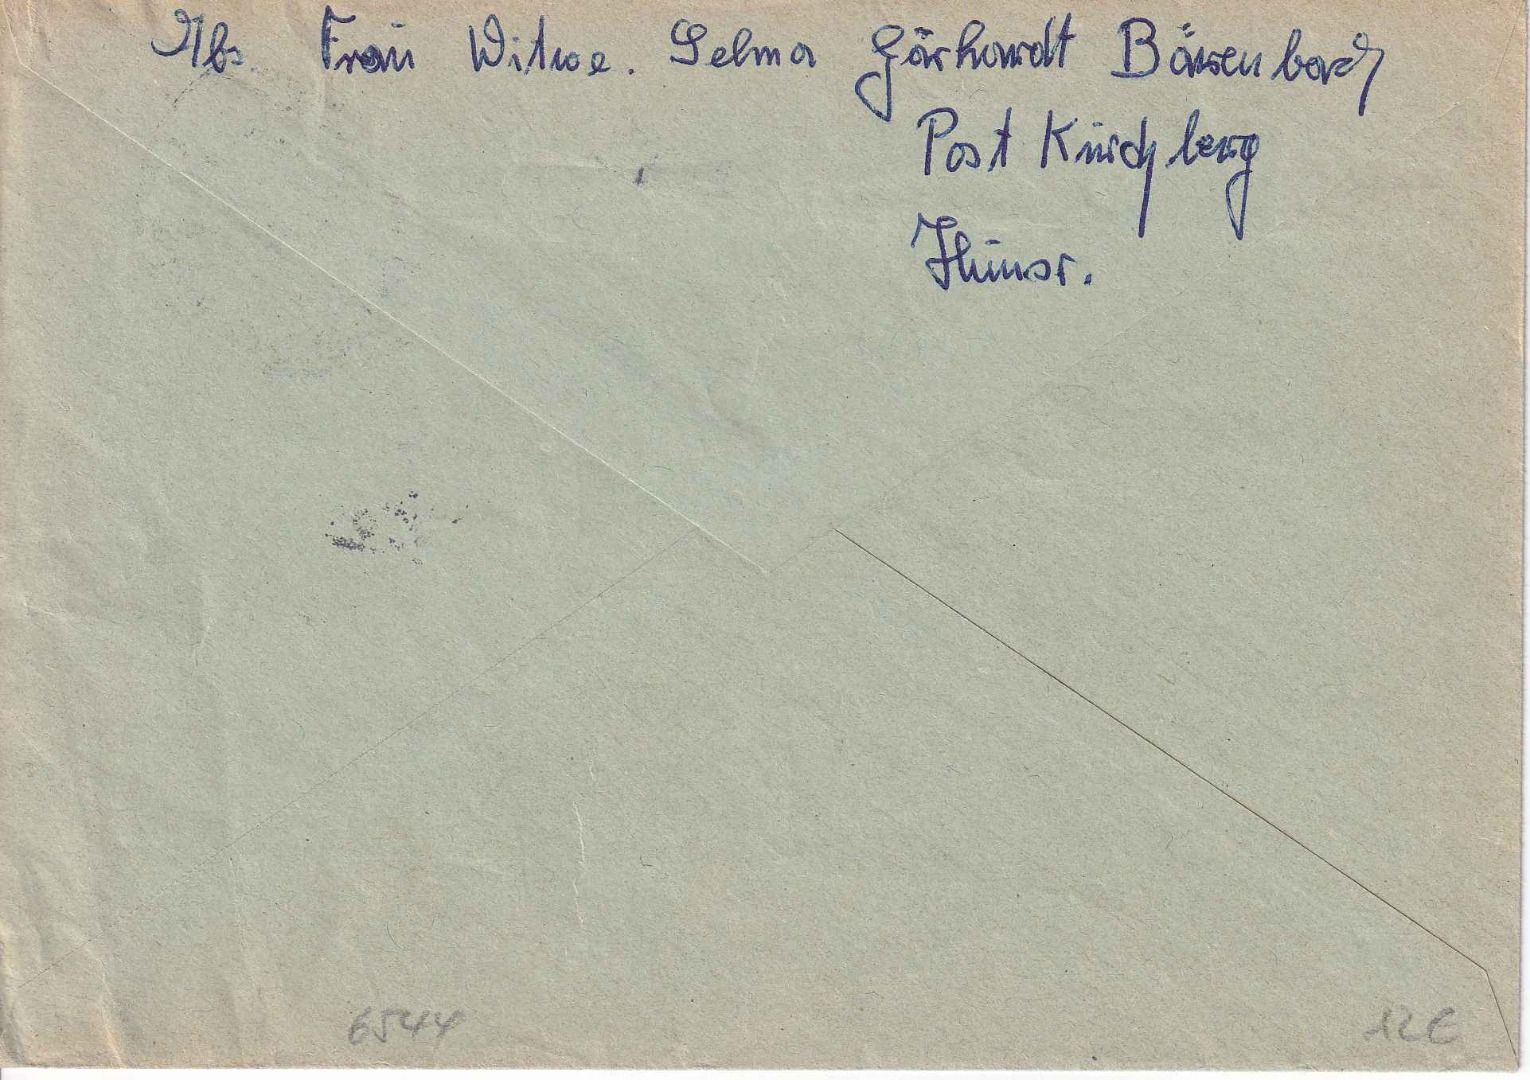 Abs. Frau Witwe. Selma Gärhardt Bärenbach
Post Kirchberg
Hunsr.
6544 12€